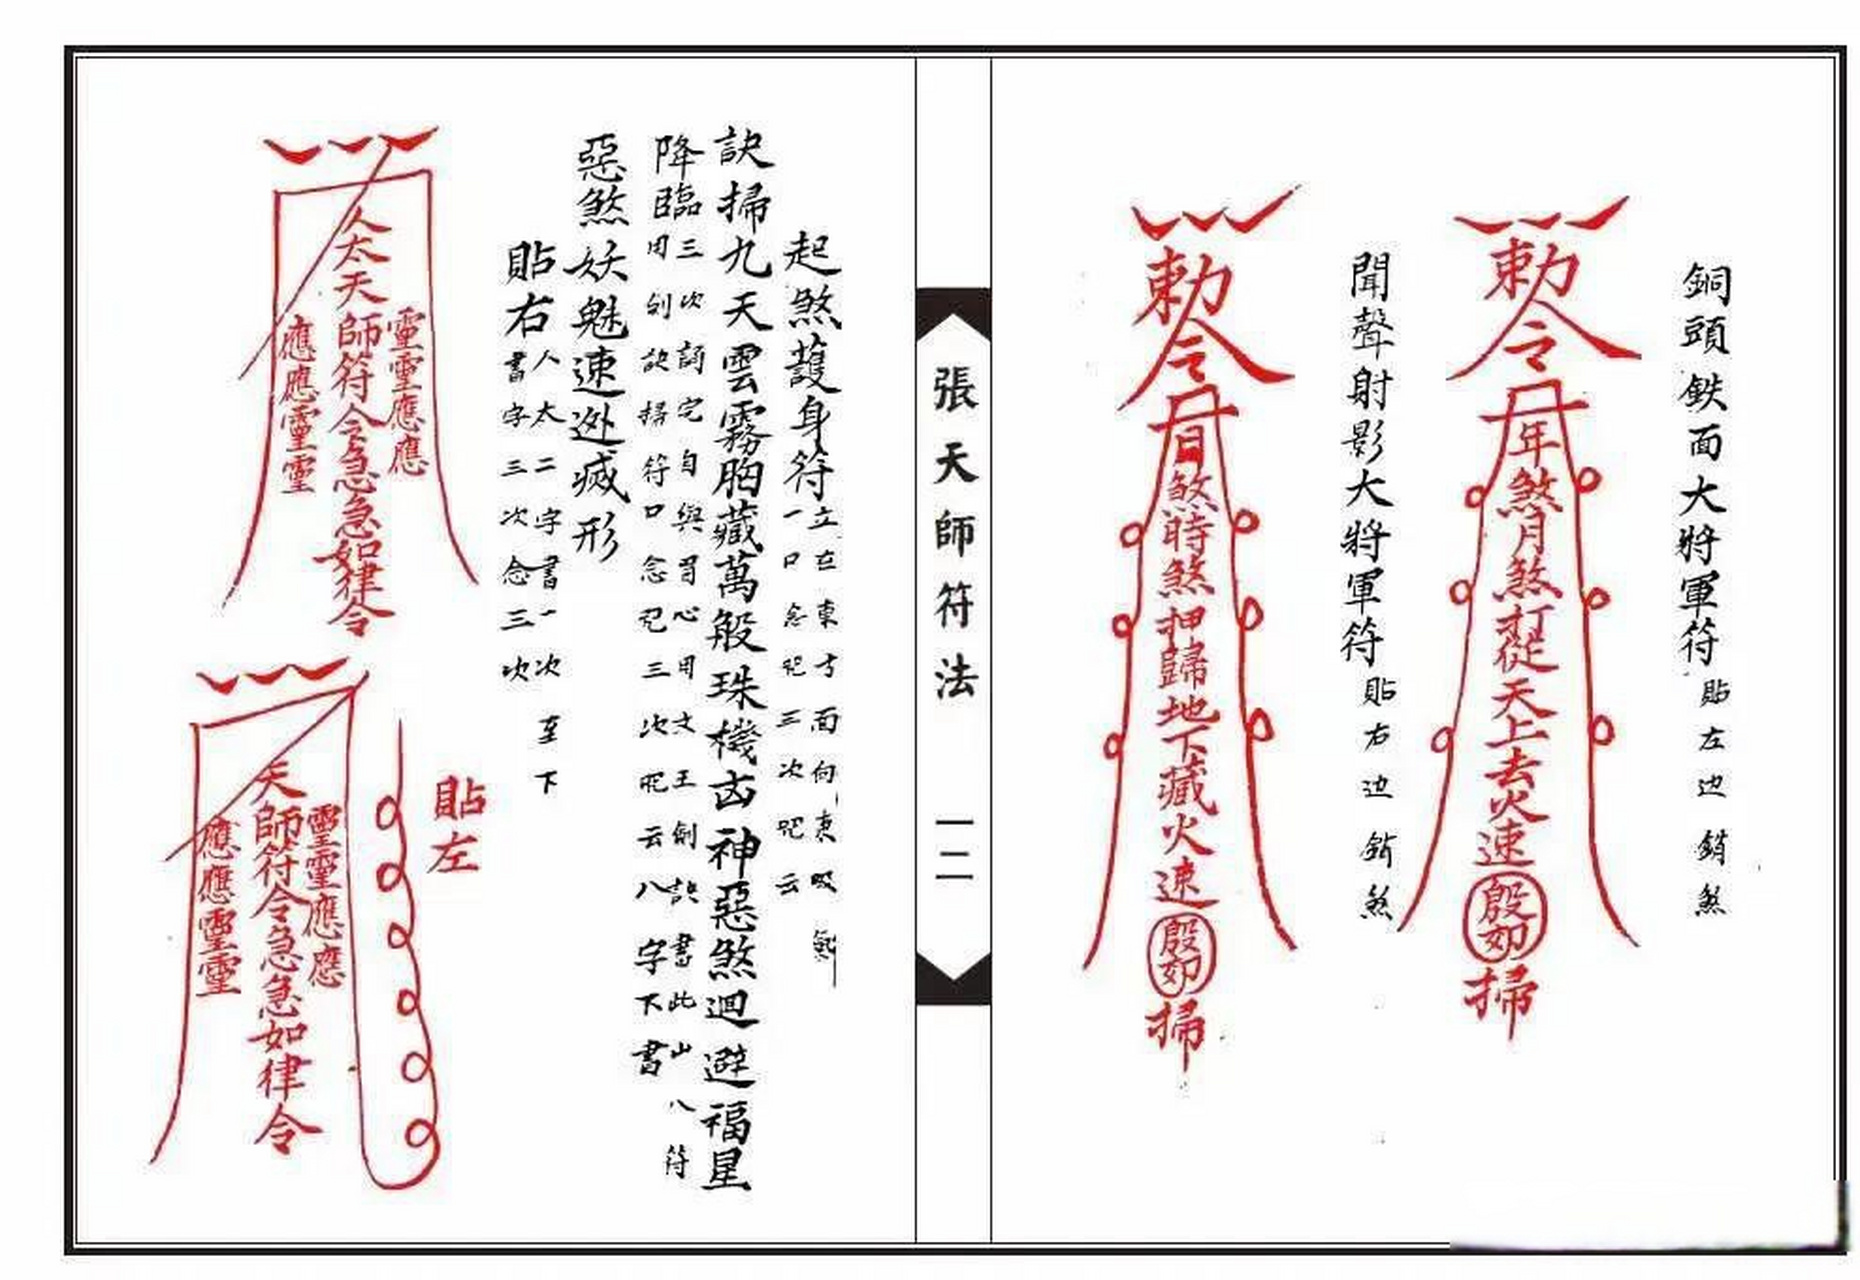 銅頭鉄面大將軍符貼左边銷煞
勅令
年煞月煞打從天上去火速
掃
聞聲射影大將軍符貼右边
勅令
日煞時煞押歸地下藏火速
掃
張天師符法
一二
起煞護身符
立在東方面向東吸
一口念咒三次咒云
訣掃九天雲霧胸藏萬般珠機凶神惡煞迴避福星
降臨
三次誦完自與眉心用文王劍訣書此
八符
用劍訣掃符口念咒三次咒云八字下書
惡煞妖魁速逊滅形
貼右
人太二字書一次至下
書字三次念三次
人太天師符令急急如律令
靈靈應應
應應靈靈
貼左
天師符令急急如律令
靈靈應應
應應靈靈